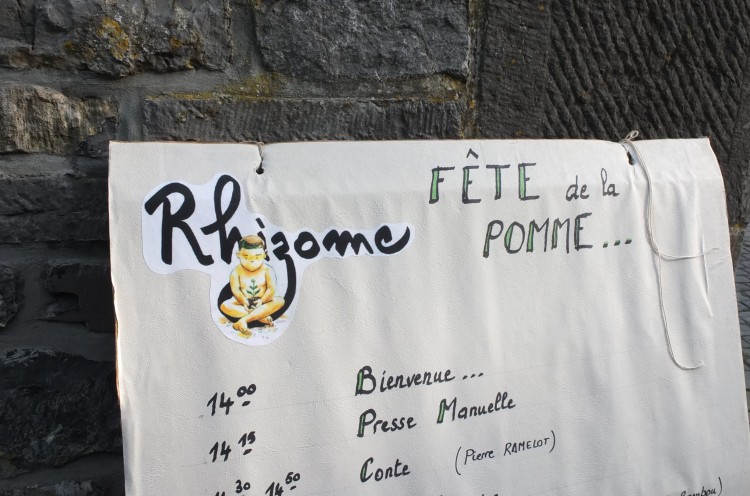 Rhizome
FÊTE de la
POMME...
14 00 Bienvenue...
14 15 Presse Manuelle
Conte (Pierre RAMELOT)
30 14 50